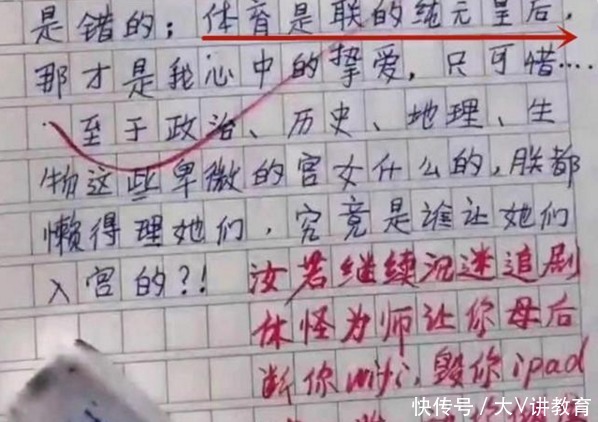 是错的；体育是联的纯元皇后，
那才是我心中的挚爱，只可惜….
‥至于政治、历史、地理、生
物这些卑微的宫女什么的，朕都
懒得理她们，究竟是谁让她们
入宫的？！汝若继续沉迷追剧
休怪为师让你母后
断你wifi，毁你ipad
快传号／大V讲教育